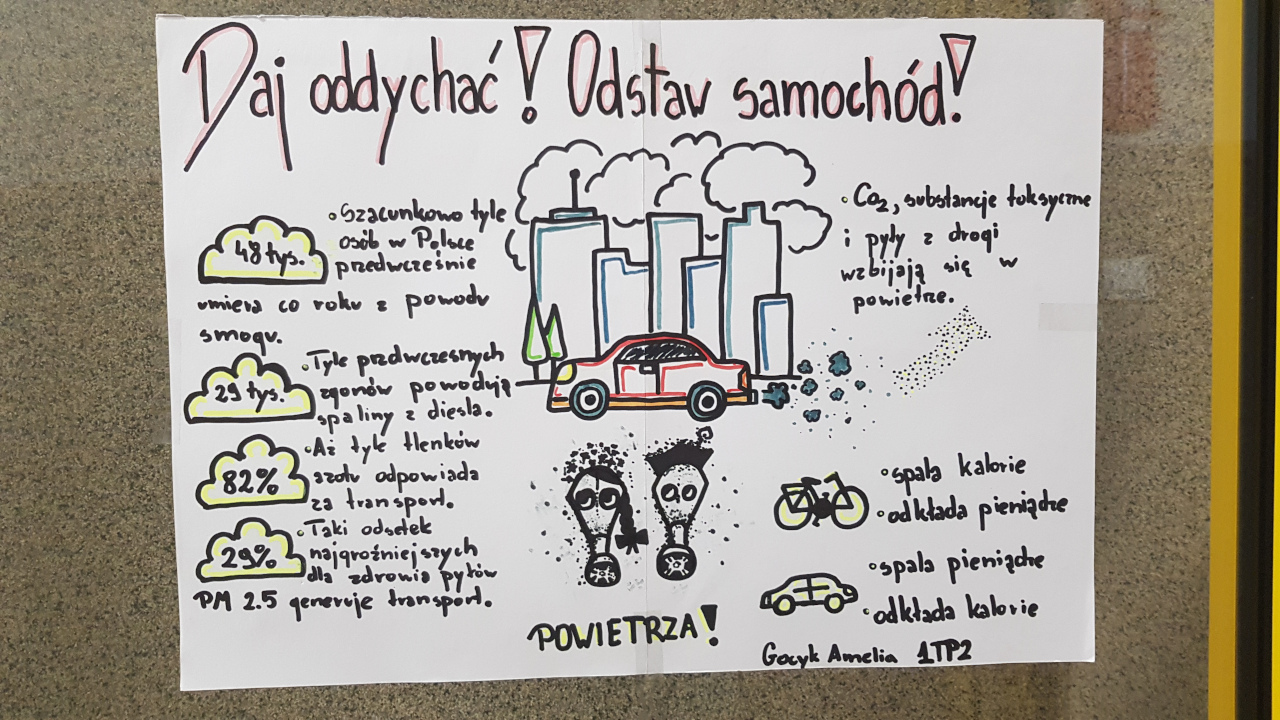 Daj oddychać! Odstaw samochód!
48 tys.
• Szacunkowo tyle
osób w Polsce
przedwcześnie
umiera co roku z powodu
smogu.
29 tys.
• Tyle przdwczesnych
zgonów powodują
spaliny z diesla.
82%
• Aż tyle tlenków
azotu odpowiada
za transport.
29%
• Taki odsetek
najgroźniejszych
dla zdrowia pyłów
PM 2.5 generuje transport.
• CO2, substancje toksyczne
i pyły z drogi
wzbijają się w
powietrze.
POWIETRZA!
• spala kalorie
• odkłada pieniądze
• spala pieniądze
• odkłada kalorie
Gocyk Amelia 1TP2